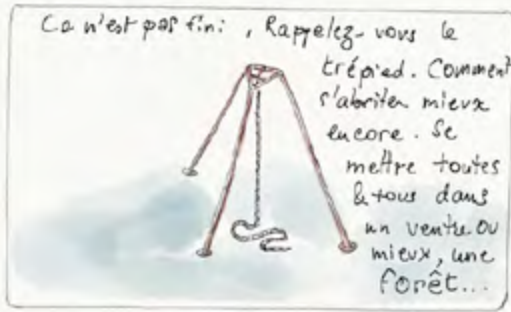 Ca n'est pas fini, Rappelez-vous le
trépied. Comment
s'abriter mieux
encore. Se
mettre toutes
& tous dans
un ventre ou
mieux, une
forêt...